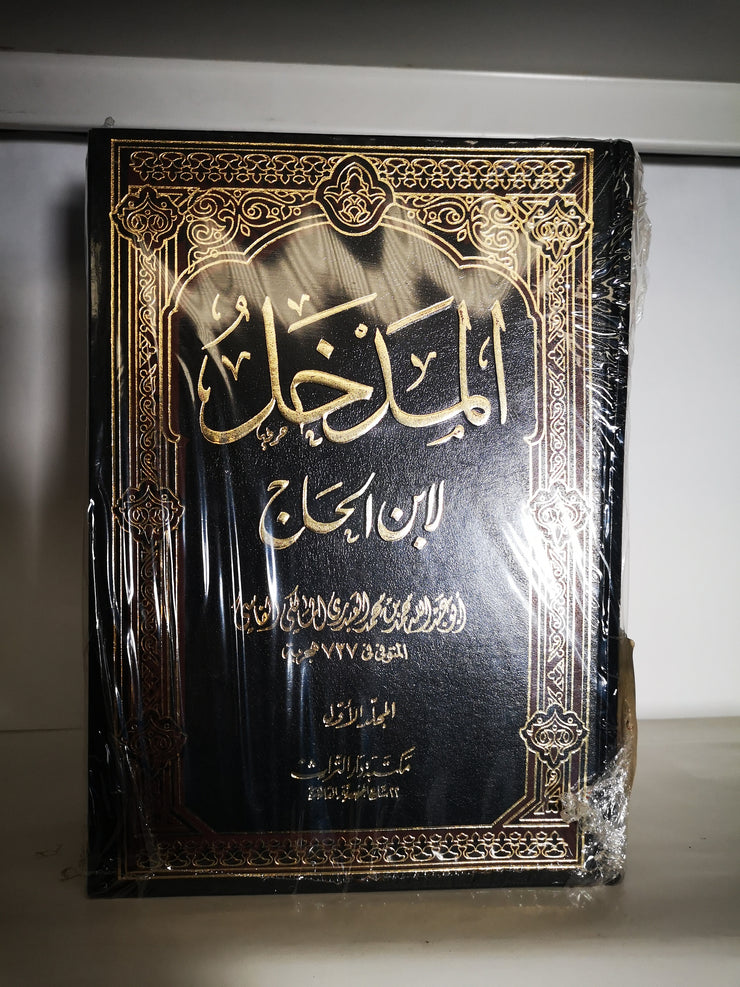 المَدْخَلُ
لابن الحاج
أبو عبد الله محمد بن محمد العبدري المالكي الفاسي
المتوفى في ٧٣٧ هجرية
المجلد الأول
مكتبة دار التراث
٢٢ شارع الجمهورية بالقاهرة